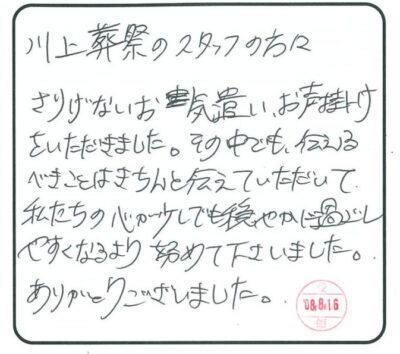 川上葬祭のスタッフの方々
さりげないお気遣い、お声掛け
をいただきました。その中でも、伝える
べきことはきちんと伝えていただいて
私たちの心が少しでも穏やかに過ごし
やすくなるよう努めて下さいました。
ありがとうございました。
'08.8.16